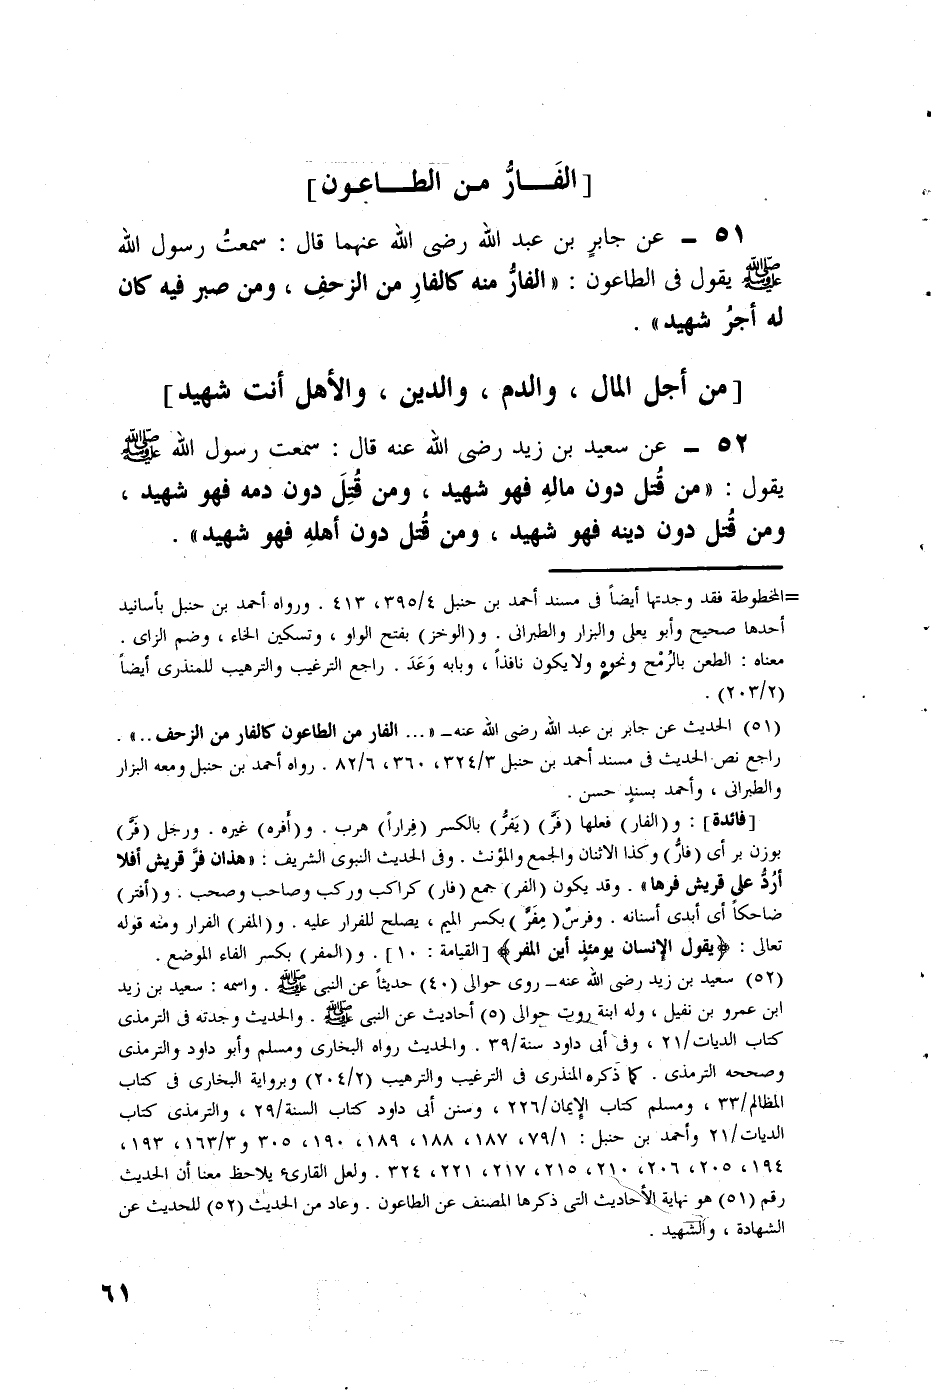 [الفَـــارُّ مـن الطـــاعـون]
٥١ ــ عن جابرٍ بن عبد الله رضى الله عنهما قال : سمعتُ رسول الله
ﷺ يقول فى الطاعون : «الفارُّ منه كالفارِ من الزحفِ ، ومن صبر فيه كان
له أجرُ شهيد» .
[من أجل المال ، والدم ، والدين ، والأهل أنت شهيد]
٥٢ ــ عن سعيد بن زيد رضى الله عنه قال : سمعت رسول الله ﷺ
يقول : «من قُتل دون مالهِ فهو شهيد ، ومن قُتِلَ دون دمه فهو شهيد ،
ومن قُتل دون دينه فهو شهيد ، ومن قُتل دون أهلهِ فهو شهيد» .
=المخطوطة فقد وجدتها أيضاً فى مسند أحمد بن حنبل ٣٩٥/٤، ٤١٣ . ورواه أحمد بن حنبل بأسانيد
أحدها صحيح وأبو يعلى والبزار والطبرانى . و(الوخز) بفتح الواو ، وتسكين الخاء ، وضم الزاى .
معناه : الطعن بالرُمْح ونحوه ولايكون نافذاً ، وبابه وَعَدَ . راجع الترغيب والترهيب للمنذرى أيضاً
(٢٠٣/٢) .
(٥١) الحديث عن جابر بن عبد الله رضى الله عنه ــ «... الفار من الطاعون كالفار من الزحف ..» .
راجع نص الحديث فى مسند أحمد بن حنبل ٣٢٤/٣، ٣٦٠، ٨٢/٦ . رواه أحمد بن حنبل ومعه البزار
والطبرانى ، وأحمد بسندٍ حسن .
[فائدة] : و(الفار) فعلها (فَرَّ) (يَفرُّ) بالكسر (فِراراً) هرب . و(أَفره) غيره . ورجل (فَرَّ)
بوزن بر أى (فارُّ) وكذا الاثنان والجمع والمؤنث . وفى الحديث النبوى الشريف : «هذان فرَّ قريش أفلا
أرُدُّ على قريش فرها» . وقد يكون (الفر) جمع (فار) كراكب وركب وصاحب وصحب . و(أفتر)
ضاحكاً أى أبدى أسنانه . وفرسٌ (مِفَرَّ) بكسر الميم ، يصلح للفرار عليه . و(المفر) الفرار ومنه قوله
تعالى : ﴿يقول الإنسان يومئذٍ أين المفر﴾ [القيامة : ١٠] . و(المفر) بكسر الفاء الموضع .
(٥٢) سعيد بن زيد رضى الله عنه ــ روى حوالى (٤٠) حديثاً عن النبى ﷺ . واسمه : سعيد بن زيد
ابن عمرو بن نفيل ، وله ابنة روت حوالى (٥) أحاديث عن النبى ﷺ . والحديث وجدته فى الترمذى
كتاب الديات/٢١ ، وفى أبى داود سنة/٣٩ . والحديث رواه البخارى ومسلم وأبو داود والترمذى
وصححه الترمذى . كما ذكره المنذرى فى الترغيب والترهيب (٢٠٤/٢) وبرواية البخارى فى كتاب
المظالم/٣٣ ، ومسلم كتاب الإيمان/٢٢٦ ، وسنن أبى داود كتاب السنة/٢٩ ، والترمذى كتاب
الديات/٢١ وأحمد بن حنبل : ٧٩/١، ١٨٧، ١٨٨، ١٨٩، ١٩٠، ٣٠٥ و١٦٣/٣، ١٩٣،
١٩٤، ٢٠٥، ٢٠٦، ٢١٠، ٢١٥، ٢١٧، ٢٢١، ٣٢٤ . ولعل القارئ يلاحظ معنا أن الحديث
رقم (٥١) هو نهاية الأحاديث التى ذكرها المصنف عن الطاعون . وعاد من الحديث (٥٢) للحديث عن
الشهادة ، والشهيد .
٦١